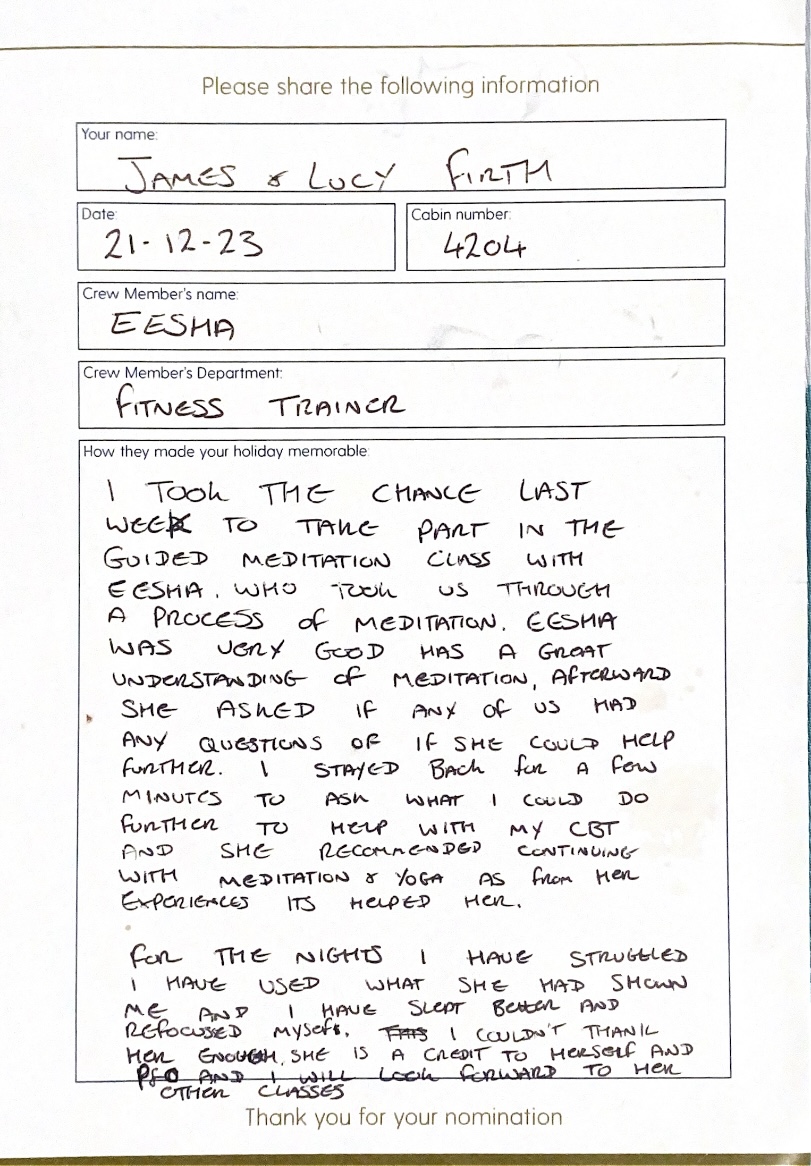 Please share the following information
Your name:
JAMES & LUCY FIRTH
Date:
21-12-23
Cabin number:
4204
Crew Member's name:
EESHA
Crew Member's Department:
FITNESS TRAINER
How they made your holiday memorable:
I TOOK THE CHANCE LAST
WEEK TO TAKE PART IN THE
GUIDED MEDITATION CLASS WITH
EESHA. WHO TOOK US THROUGH
A PROCESS OF MEDITATION. EESHA
WAS VERY GOOD HAS A GREAT
UNDERSTANDING OF MEDITATION, AFTERWARD
SHE ASKED IF ANY OF US HAD
ANY QUESTIONS OF IF SHE COULD HELP
FURTHER. I STAYED BACK FOR A FEW
MINUTES TO ASK WHAT I COULD DO
FURTHER TO HELP WITH MY CBT
AND SHE RECOMMENDED CONTINUING
WITH MEDITATION & YOGA AS FROM HER
EXPERIENCES ITS HELPED HER.
FOR THE NIGHTS I HAVE STRUGGLED
I HAVE USED WHAT SHE HAD SHOWN
ME AND I HAVE SLEPT BETTER AND
REFOCUSSED MYSELF. I COULDN'T THANK
HER ENOUGH. SHE IS A CREDIT TO HERSELF AND
P&O AND I WILL LOOK FORWARD TO HER
OTHER CLASSES
Thank you for your nomination